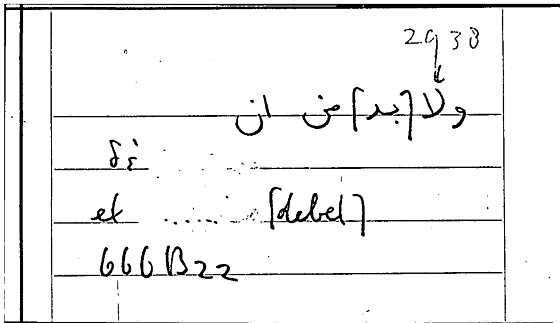 ولا [بد] من ان
δὲ
et ...... [debet]
666B22